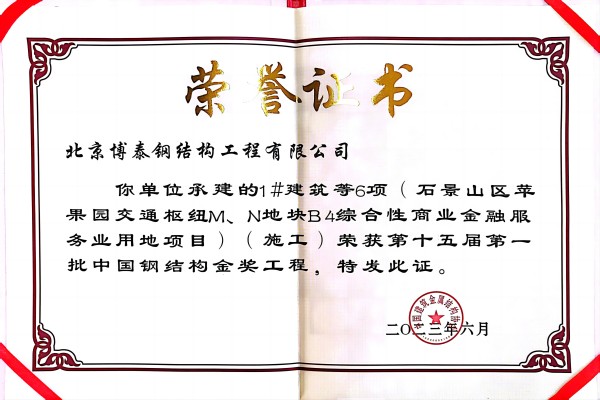 荣誉证书
北京博泰钢结构工程有限公司
你单位承建的1#建筑等6项（石景山区苹
果园交通枢纽M、N地块B4综合性商业金融服
务业用地项目）（施工）荣获第十五届第一
批中国钢结构金奖工程，特发此证。
中国建筑金属结构协会
二〇二三年六月